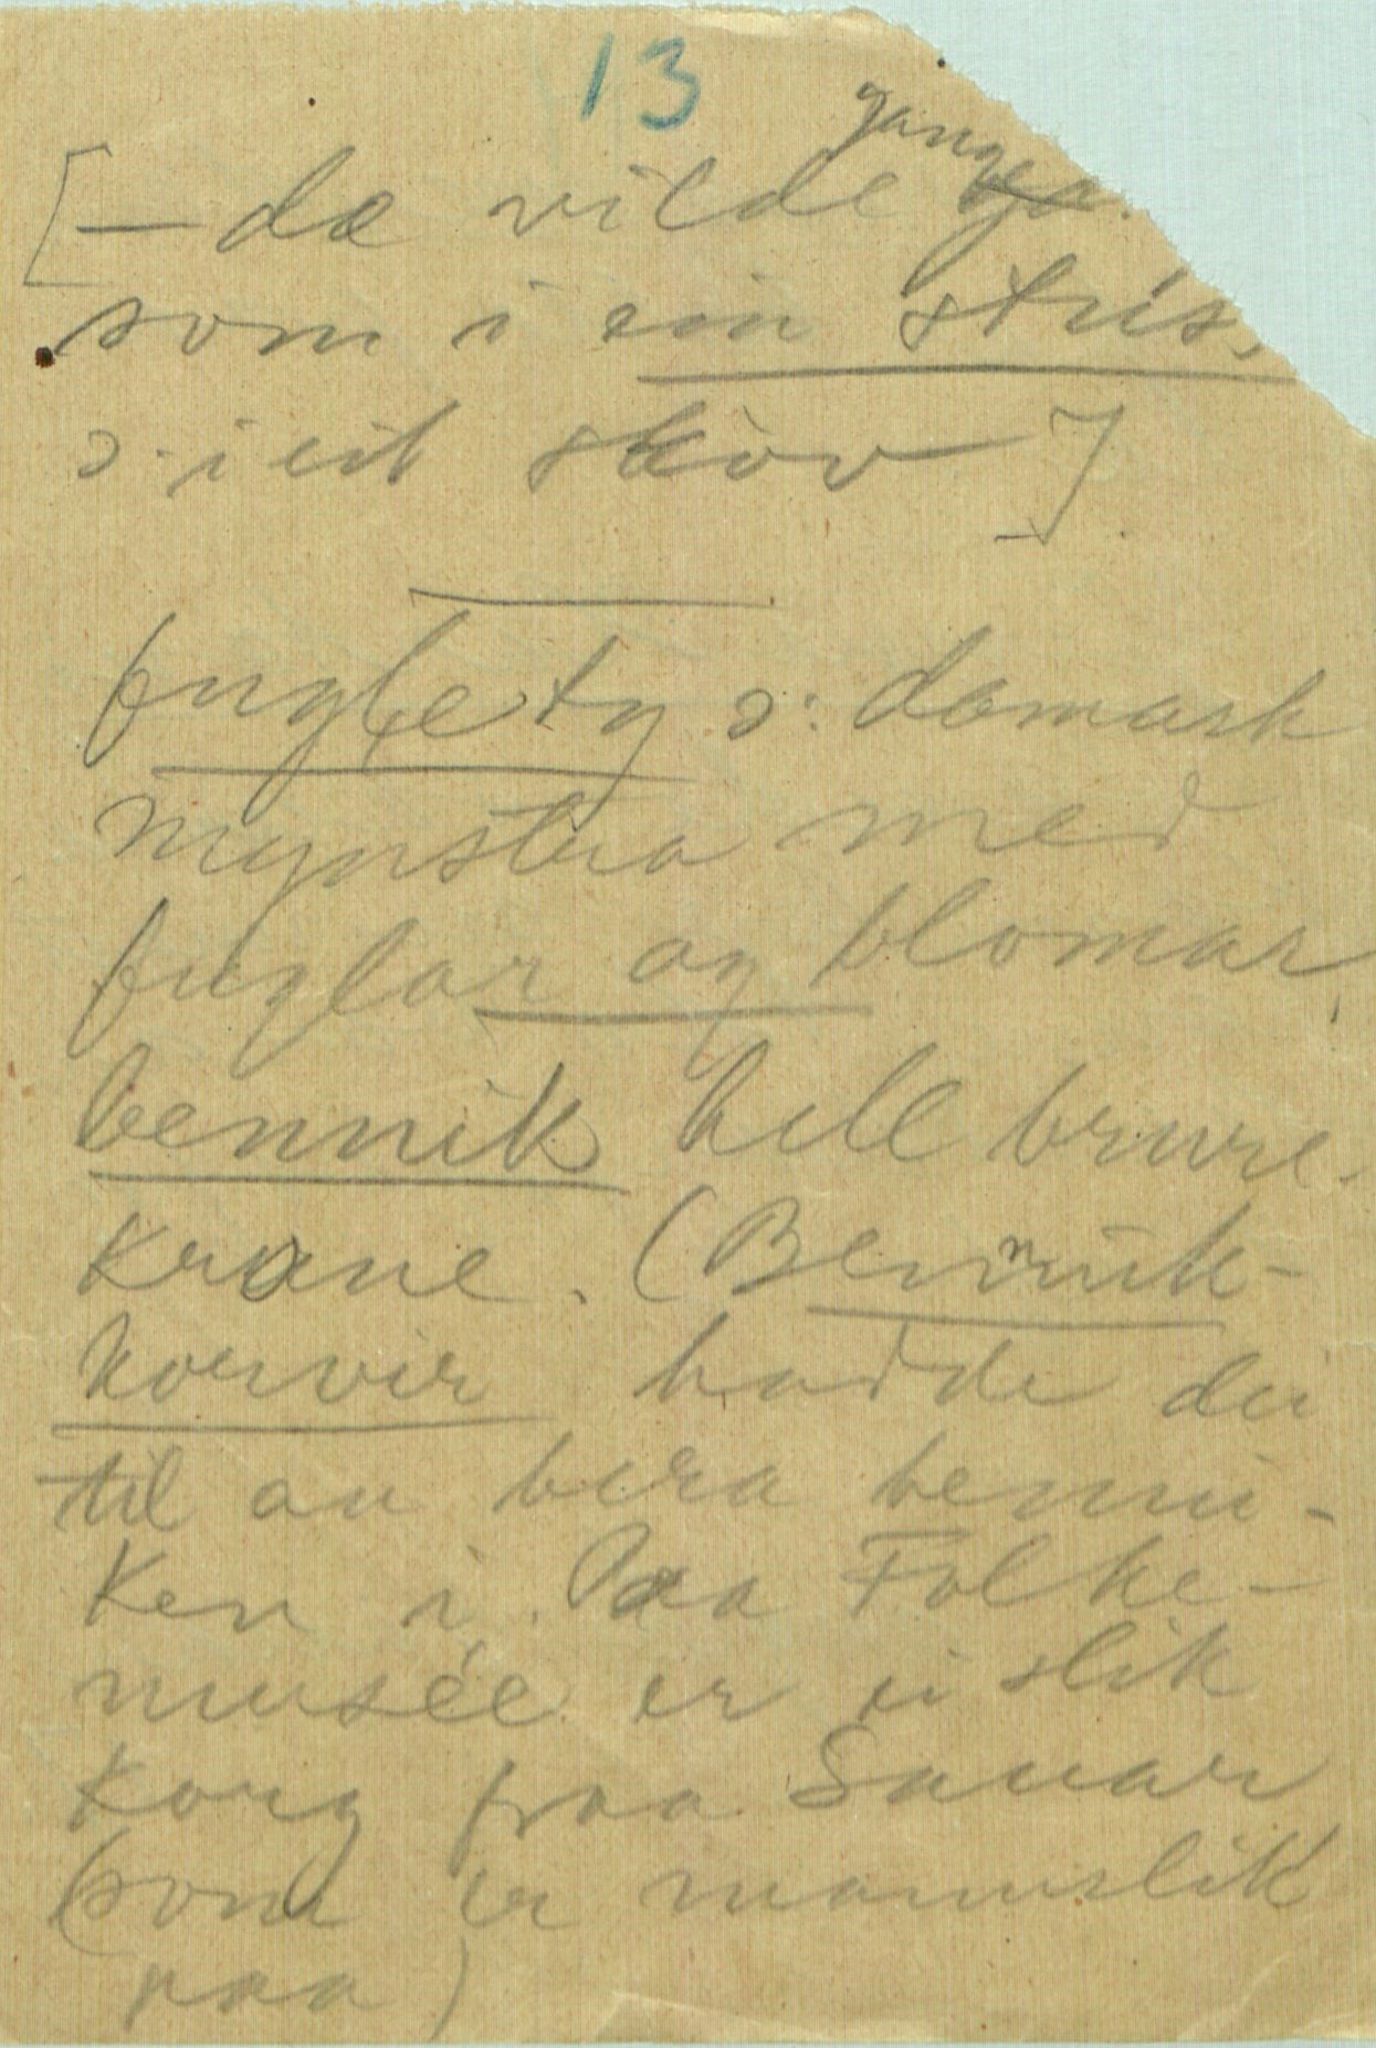 13
[– dæ vilde ganga
som i ein stris,
ɔ: i eit skov]
fuglety ɔ: damask
mynstra med
fuglar og blomar,
bennik hell brure-
krone. (Bennik-
korvir hadde dei
til aa bera benni-
ken i. Paa Folke-
musée er ei slik
korg fraa Sauar
(som er mannslik
paa)